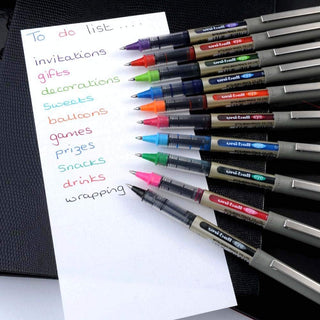 To do list ....
invitations
gifts
decorations
sweets
balloons
games
prizes
snacks
drinks
wrapping
uni-ball eye
uni-ball eye
uni-ball eye
uni-ball eye
uni-ball eye
uni-ball eye
uni-ball eye
uni-ball eye
uni-ball eye
uni-ball eye